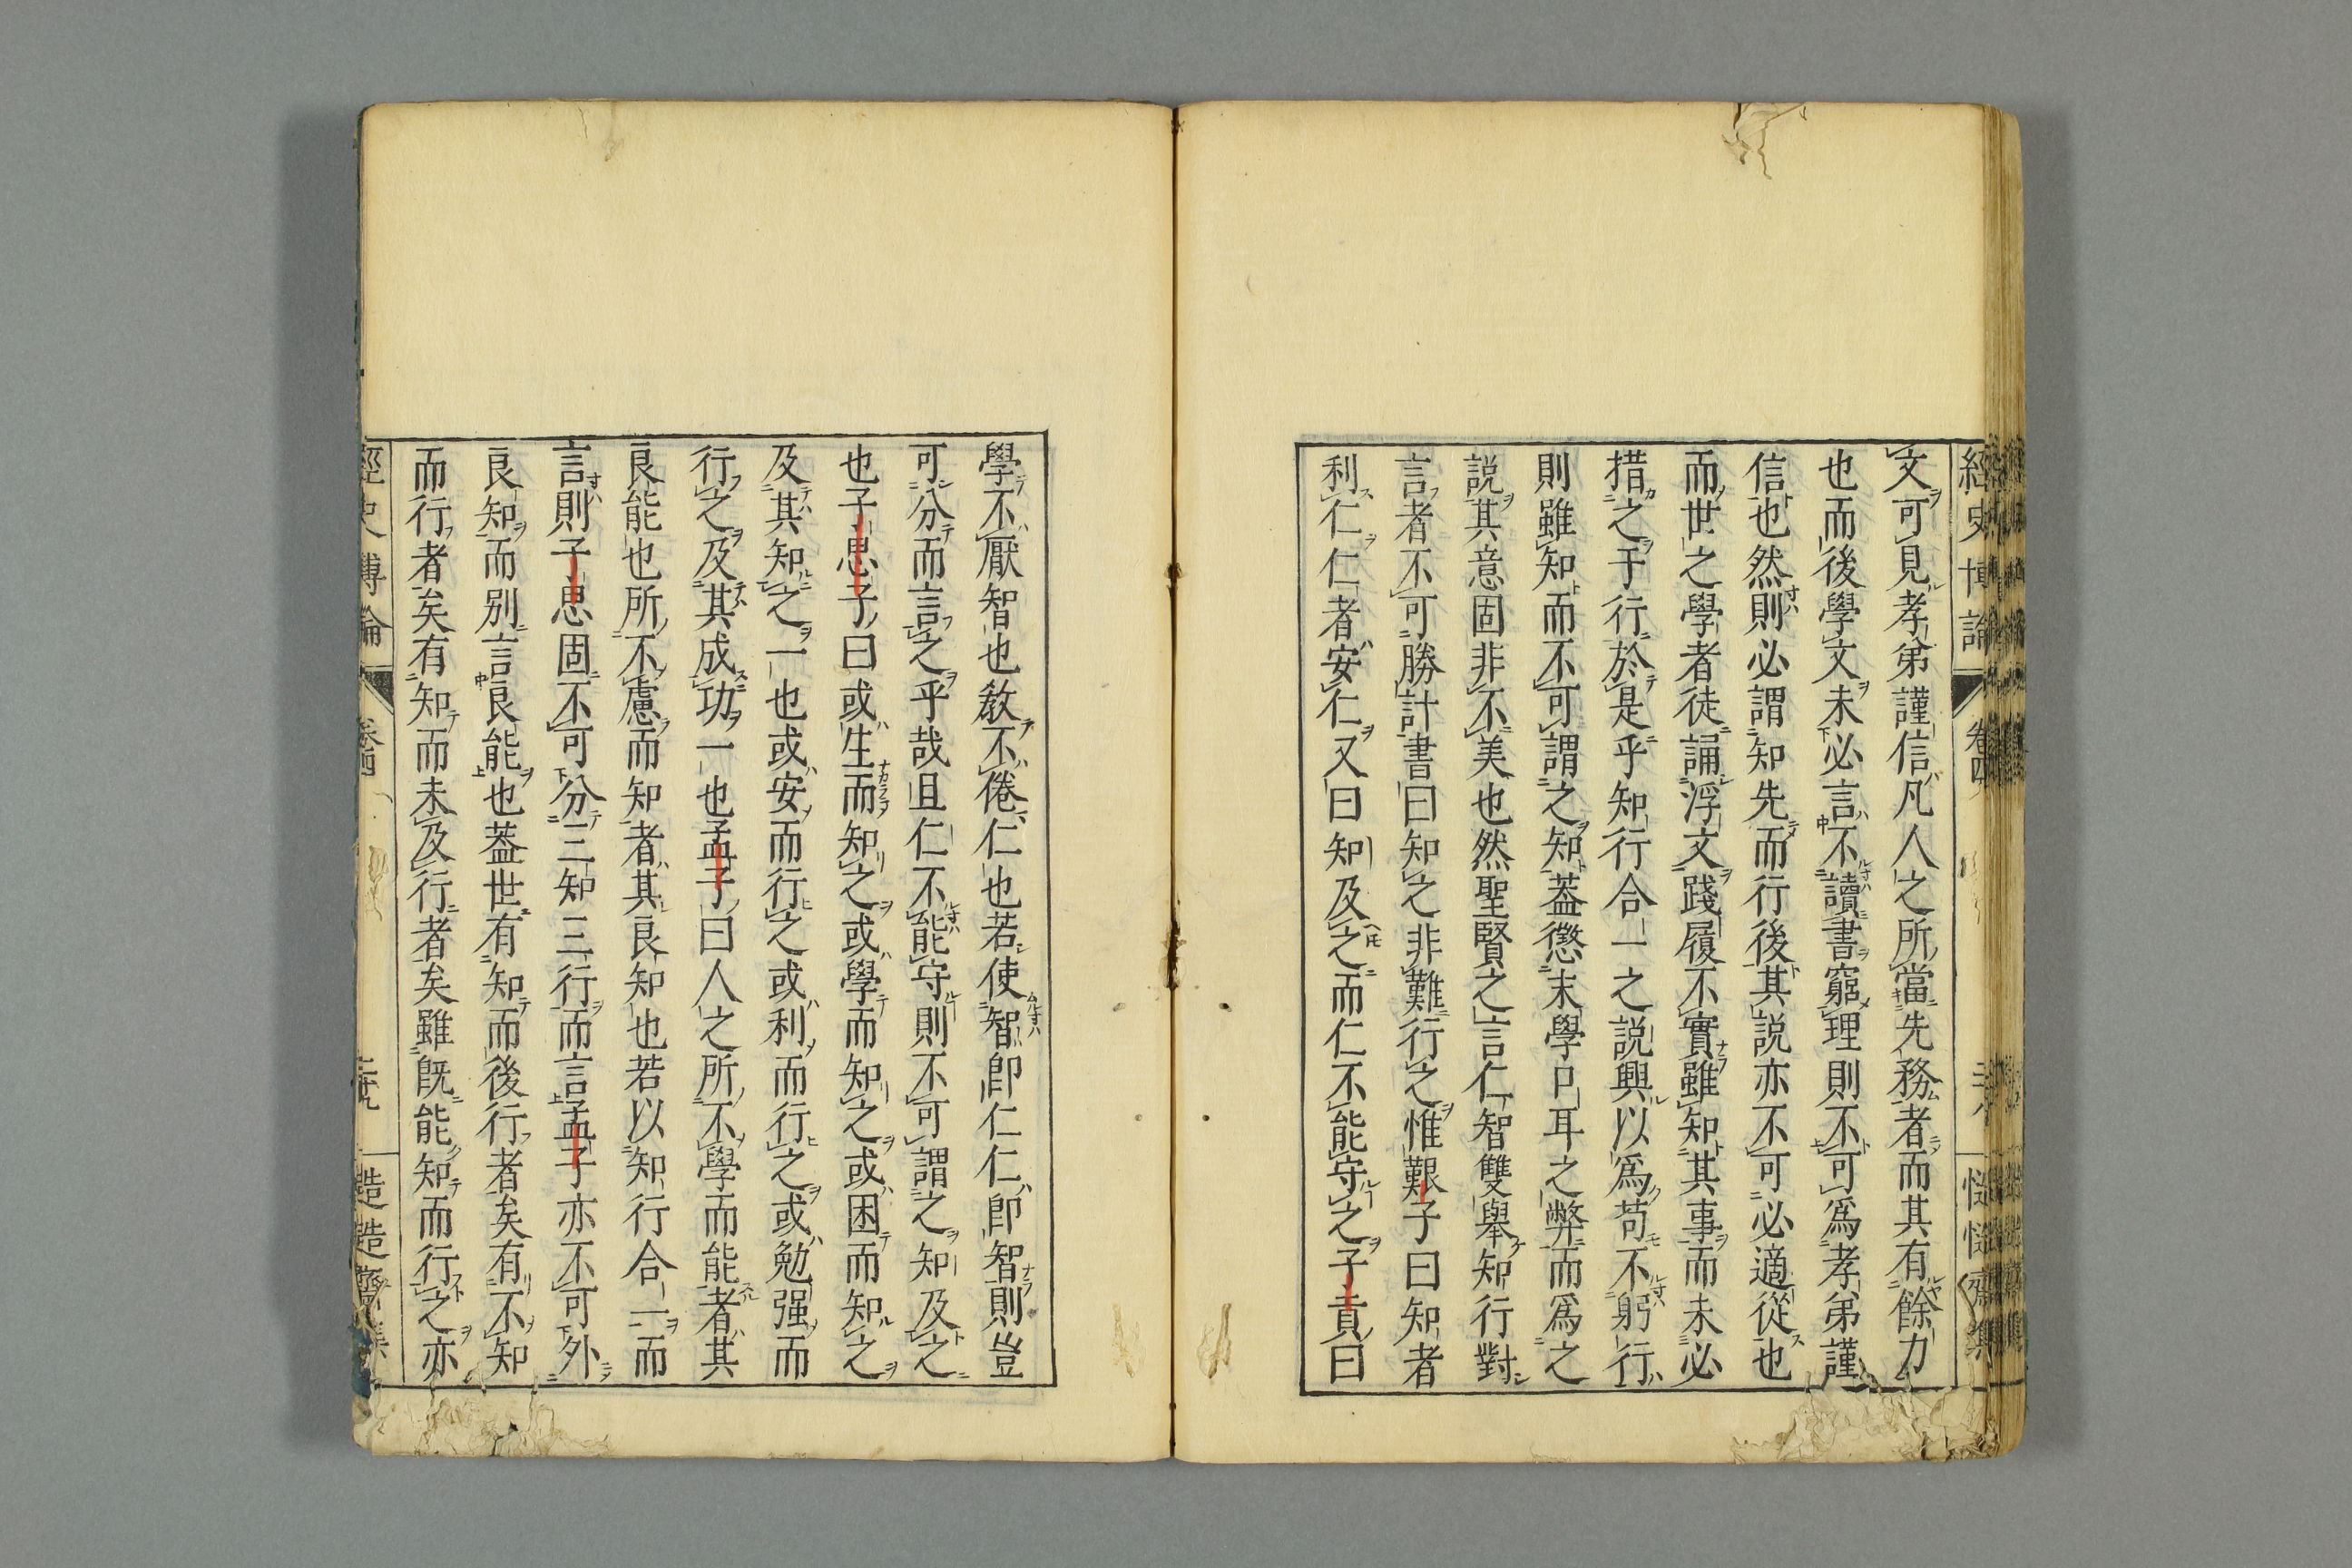 經史博論 卷四 慥慥齋集
文可見孝弟謹信凡人之所當先務者而其有餘力
也而後學文未必言不讀書窮理則不可爲孝弟謹
信也然則必謂知先而行後其説亦不可必適從也
而世之學者徒誦浮文踐履不實雖知其事而未必
措之于行於是乎知行合一之説興以爲苟不躬行
則雖知而不可謂之知蓋懲末學口耳之弊而爲之
説其意固非不美也然聖賢之言仁智雙舉知行對
言者不可勝計書曰知之非難行之惟艱子曰知者
利仁仁者安仁又曰知及之而仁不能守之子貢曰
學不厭智也敎不倦仁也若使智卽仁仁卽智則豈
可分而言之乎哉且仁不能守則不可謂之知及之
也子思子曰或生而知之或學而知之或困而知之
及其知之一也或安而行之或利而行之或勉强而
行之及其成功一也孟子曰人之所不學而能者其
良能也所不慮而知者其良知也若以知行合一而
言則子思固不可分三知三行而言孟子亦不可外
良知而別言良能也蓋世有知而後行者矣有不知
而行者矣有知而未及行者矣雖旣能知而行之亦
經史博論 卷四 慥慥齋集